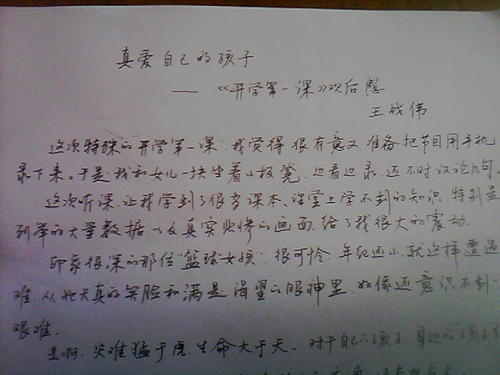 真爱自己的孩子
——《开学第一课》观后感
王战伟
这次特殊的"开学第一课",我觉得很有意义,准备把节目用手机
录下来。于是,我和女儿一块坐着小板凳,边看边录,还不时议论几句。
这次听课,让我学到了很多课本、课堂上学不到的知识,特别是
列举的大量数据,以及真实悲惨的画面,给了我很大的震动。
印象很深的那位"篮球女孩",很可怜,年纪还小,就这样遭遇
难,从她天真的笑脸和满是渴望的眼神里,好像还意识不到
艰难。
是啊,灾难猛于虎,生命大于天。对于自己的孩子,身边的孩子